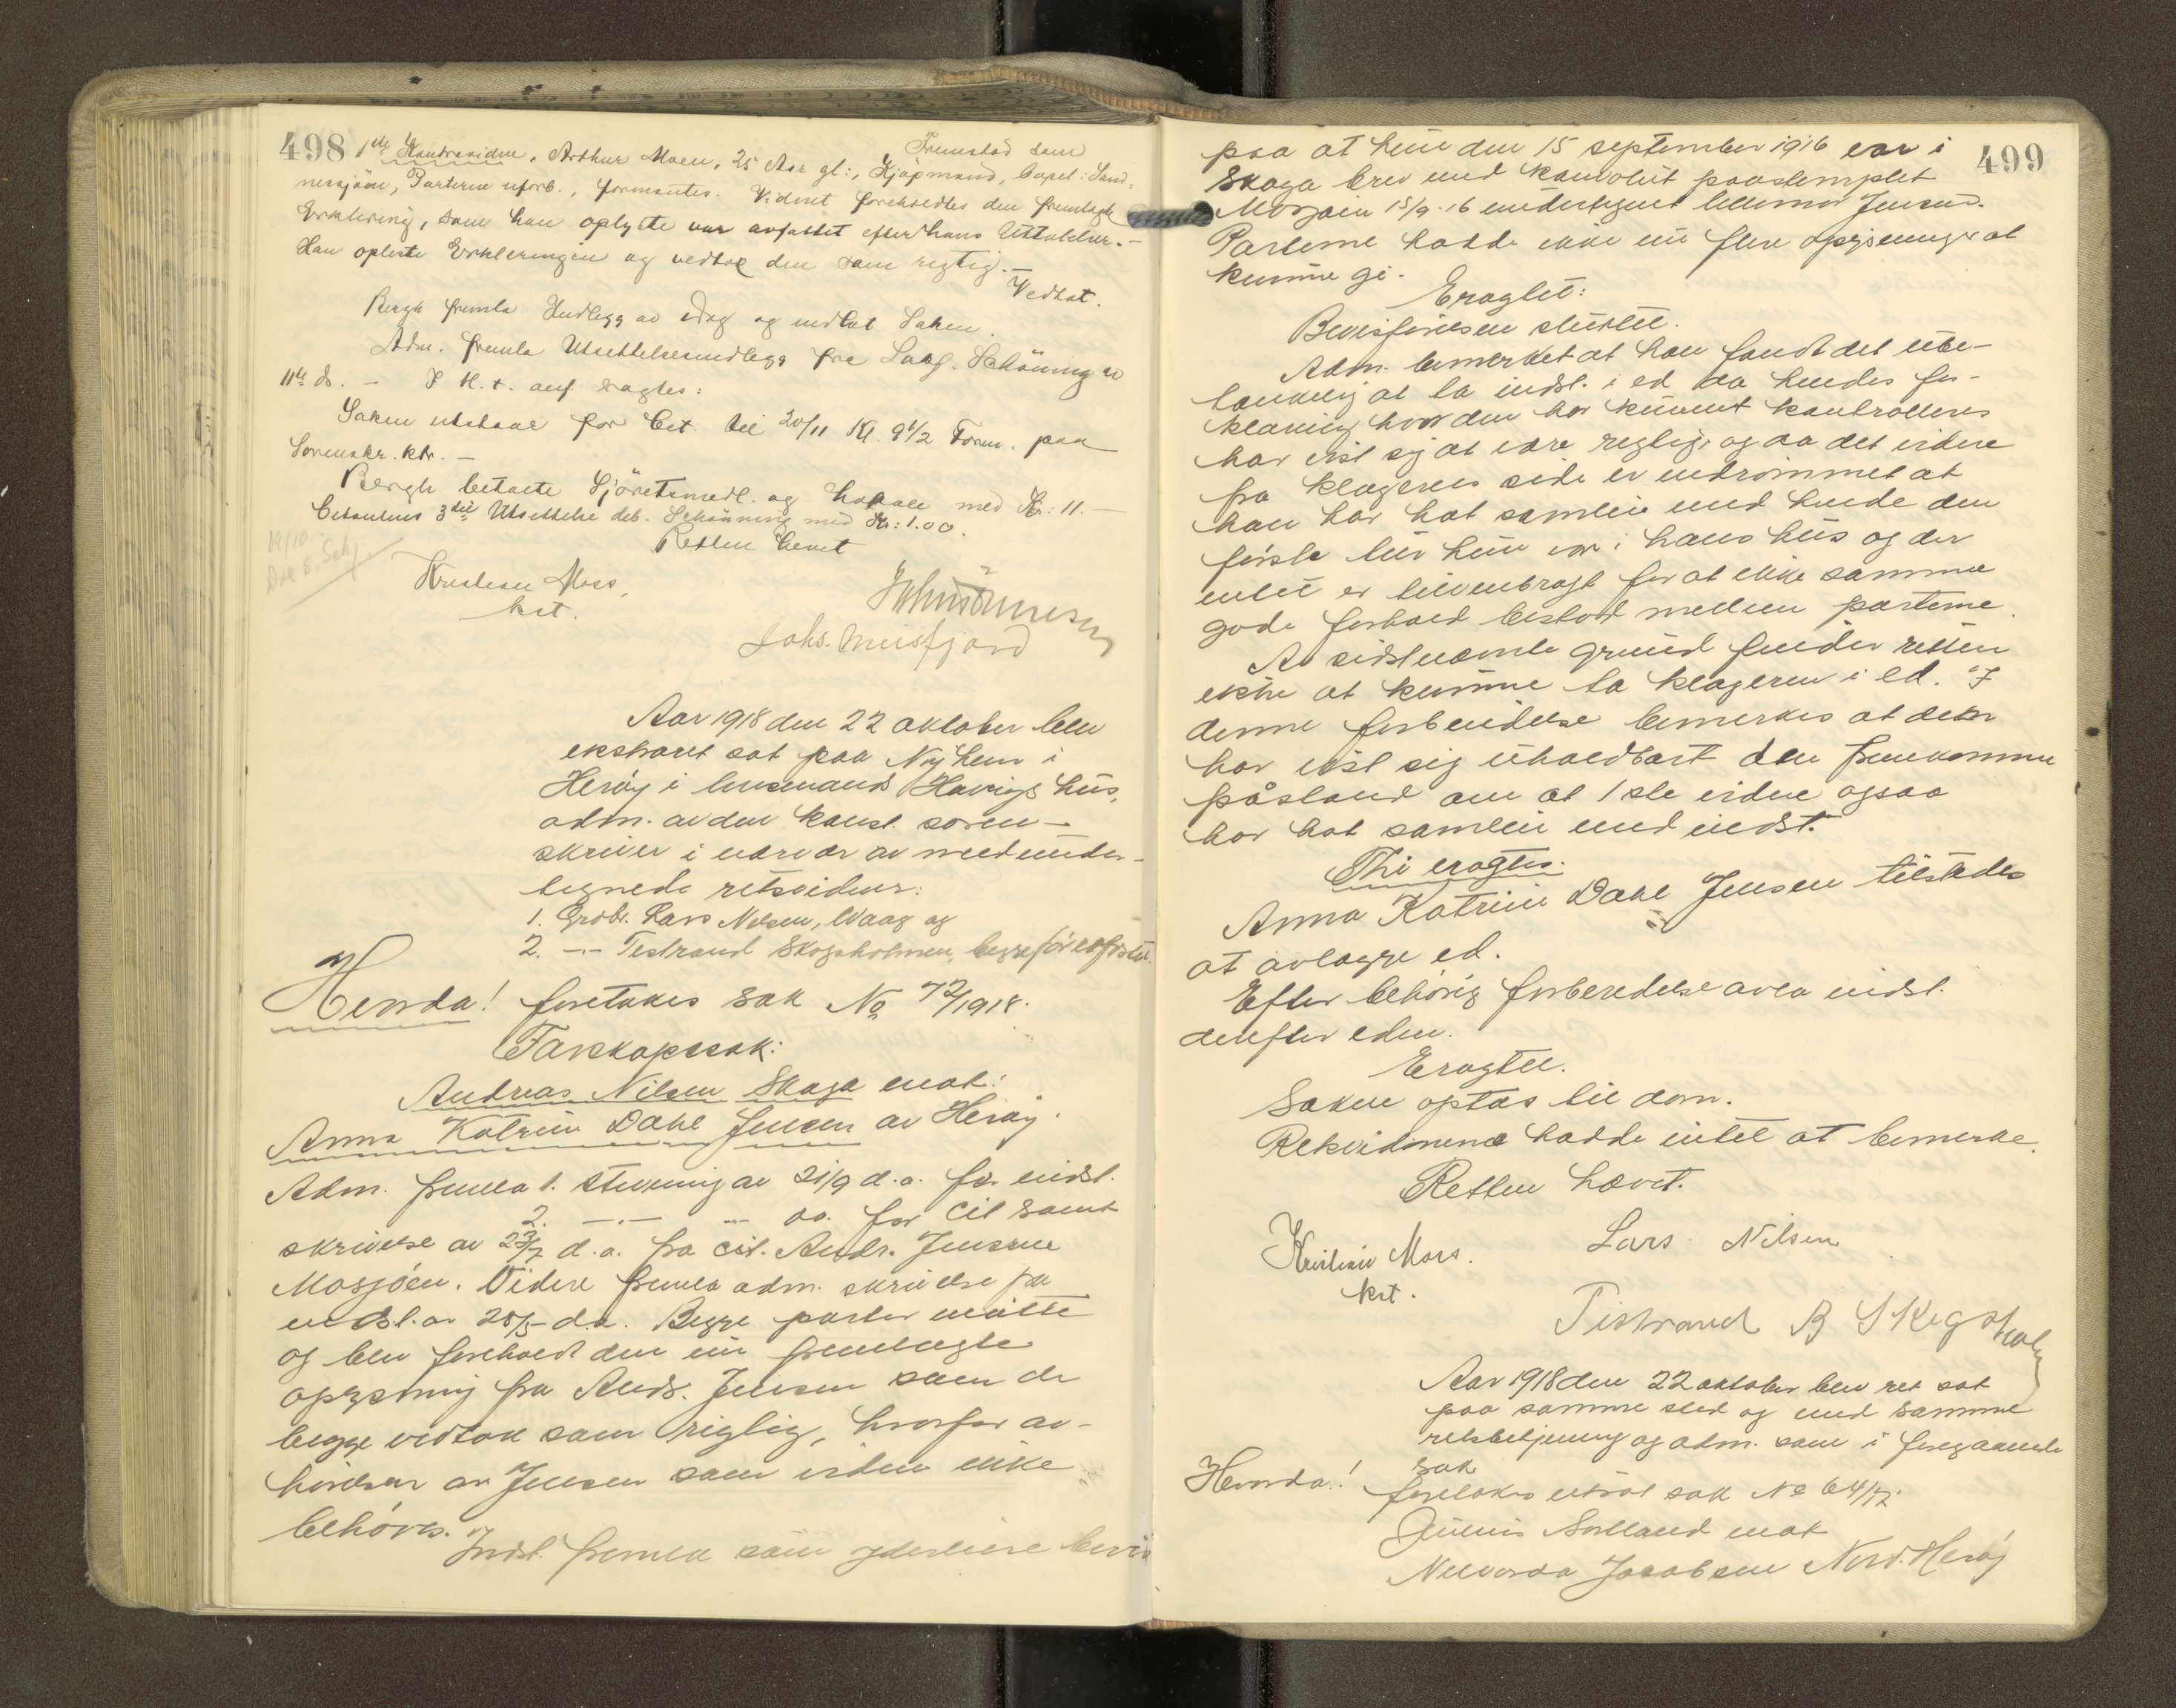 498
Fremstod som
1ste Kontravidne, Arthur Moen, 25 Aar gl:, Kjøpmand, Bopæl: Sand-
nessjøen, Parterne uforb., formantes. Vidnet foreholdtes den fremlagte
Erklæring, som han oplyste var avfattet efter hans Uttalelser.-
Han oplæste Erklæringen og vedtok den som rigtig.-
Vedtat.
Bergh fremla Indlegg av idag og indlot Saken.
Adm. fremla Utsettelsesindlegg fra Sakf. Schöning av
11te ds. - I H.t. auf eragtes:
Saken utstaar for Cit. til 20/11 Kl. 9 1/2 Form. paa
Sorenskr. ktr. -
Bergh betalte Sjøretsmedl. og Lokale med Kr: 11.-
Citantens 3die Utsettelse deb. Schönning med Kr: 1.00.
Retten hevet
19/10
Kristian Moss,
kst.
Johs. Meisfjord
Aar 1918 den 22 oktober blev
ekstraret sat paa Nyheim i
Herøy i lensmand Havigs hus,
adm. av den konst. soren-
skriver i nærvær av medunder-
tegnede retsvidner:
1. Grobr. Lars Nilsen, Waag og
2. -"- Tistrand Skogsholmen, begge før edfæstet.
Hvorda! foretokes sak No 72/1918.
Farskapssak:
Andreas Nilsen Skaga mot:
Anna Katrine Dahl Jensen av Herøy.
Adm. fremla 1. stevning av 21/9 d.a. for indst.
2. -"- - do. for cit samt
skrivelse av 23/7 d.a. fra cit. Andr. Jensen
Mosjøen. Videre fremla adm. skrivelse fra
indst. av 28/5 d.a. Begge parter møtte
og blev foreholdt den nu fremlagte
oplysning fra Andr. Jensen som de
begge vedtok som rigtig, hvorfor av-
hørelsen av Jensen som vidne ikke
behøves.
Indst. fremla som yderligere bevis
499
paa at hun den 15 september 1916 var i
Skaga brev med konvolut poststemplet
Mosjøen 15/9-16 undertegnet Jensen.
Parterne hadde ikke nu flere oplysninger at
kunne gi.
Eragtet:
Bevisførelsen sluttet.
Adm. bemerket at han fandt det ube-
tænkelig at ta indst. i ed da hendes for-
klaring hvor den har kunnet kontrolleres
har vist sig at være rigtig, og da det videre
fra klagerens side er indrømmet at
han har hat samleie med hende den
første tid hun var i hans hus og der
intet er tilveiebragt for at ikke samme
gode forhold bestod mellem parterne.
Av sidstnævnte grund finder retten
ikke at kunne ta klageren i ed. I
denne forbindelse bemerkes at det
har vist sig uholdbart den fremkomne
påstand om at 1ste vidne ogsaa
har hat samleie med indst.
Thi eragtes:
Anna Katrine Dahl Jensen tilstedes
at avlægge ed.
Efter behørig forberedelse avla indst.
derefter eden.
Eragtet.
Saken optas til dom.
Retsvidnene hadde intet at bemerke.
Retten hævet.
Kristian Moss.
kst.
Lars Nilsen
Tistrand B Skogsholm
Aar 1918 den 22 oktober blev ret sat
paa samme sted og med samme
retsbetjening og adm. som i foregaaende
sak
Hvorda! foretokes sak No 64/17.
Julius Solland mot
Jacobsen Nord-Herøy